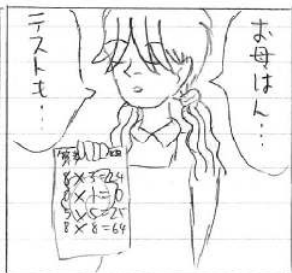 お母はん…
テストも…
8×3=24
5×5=25
8×8=64